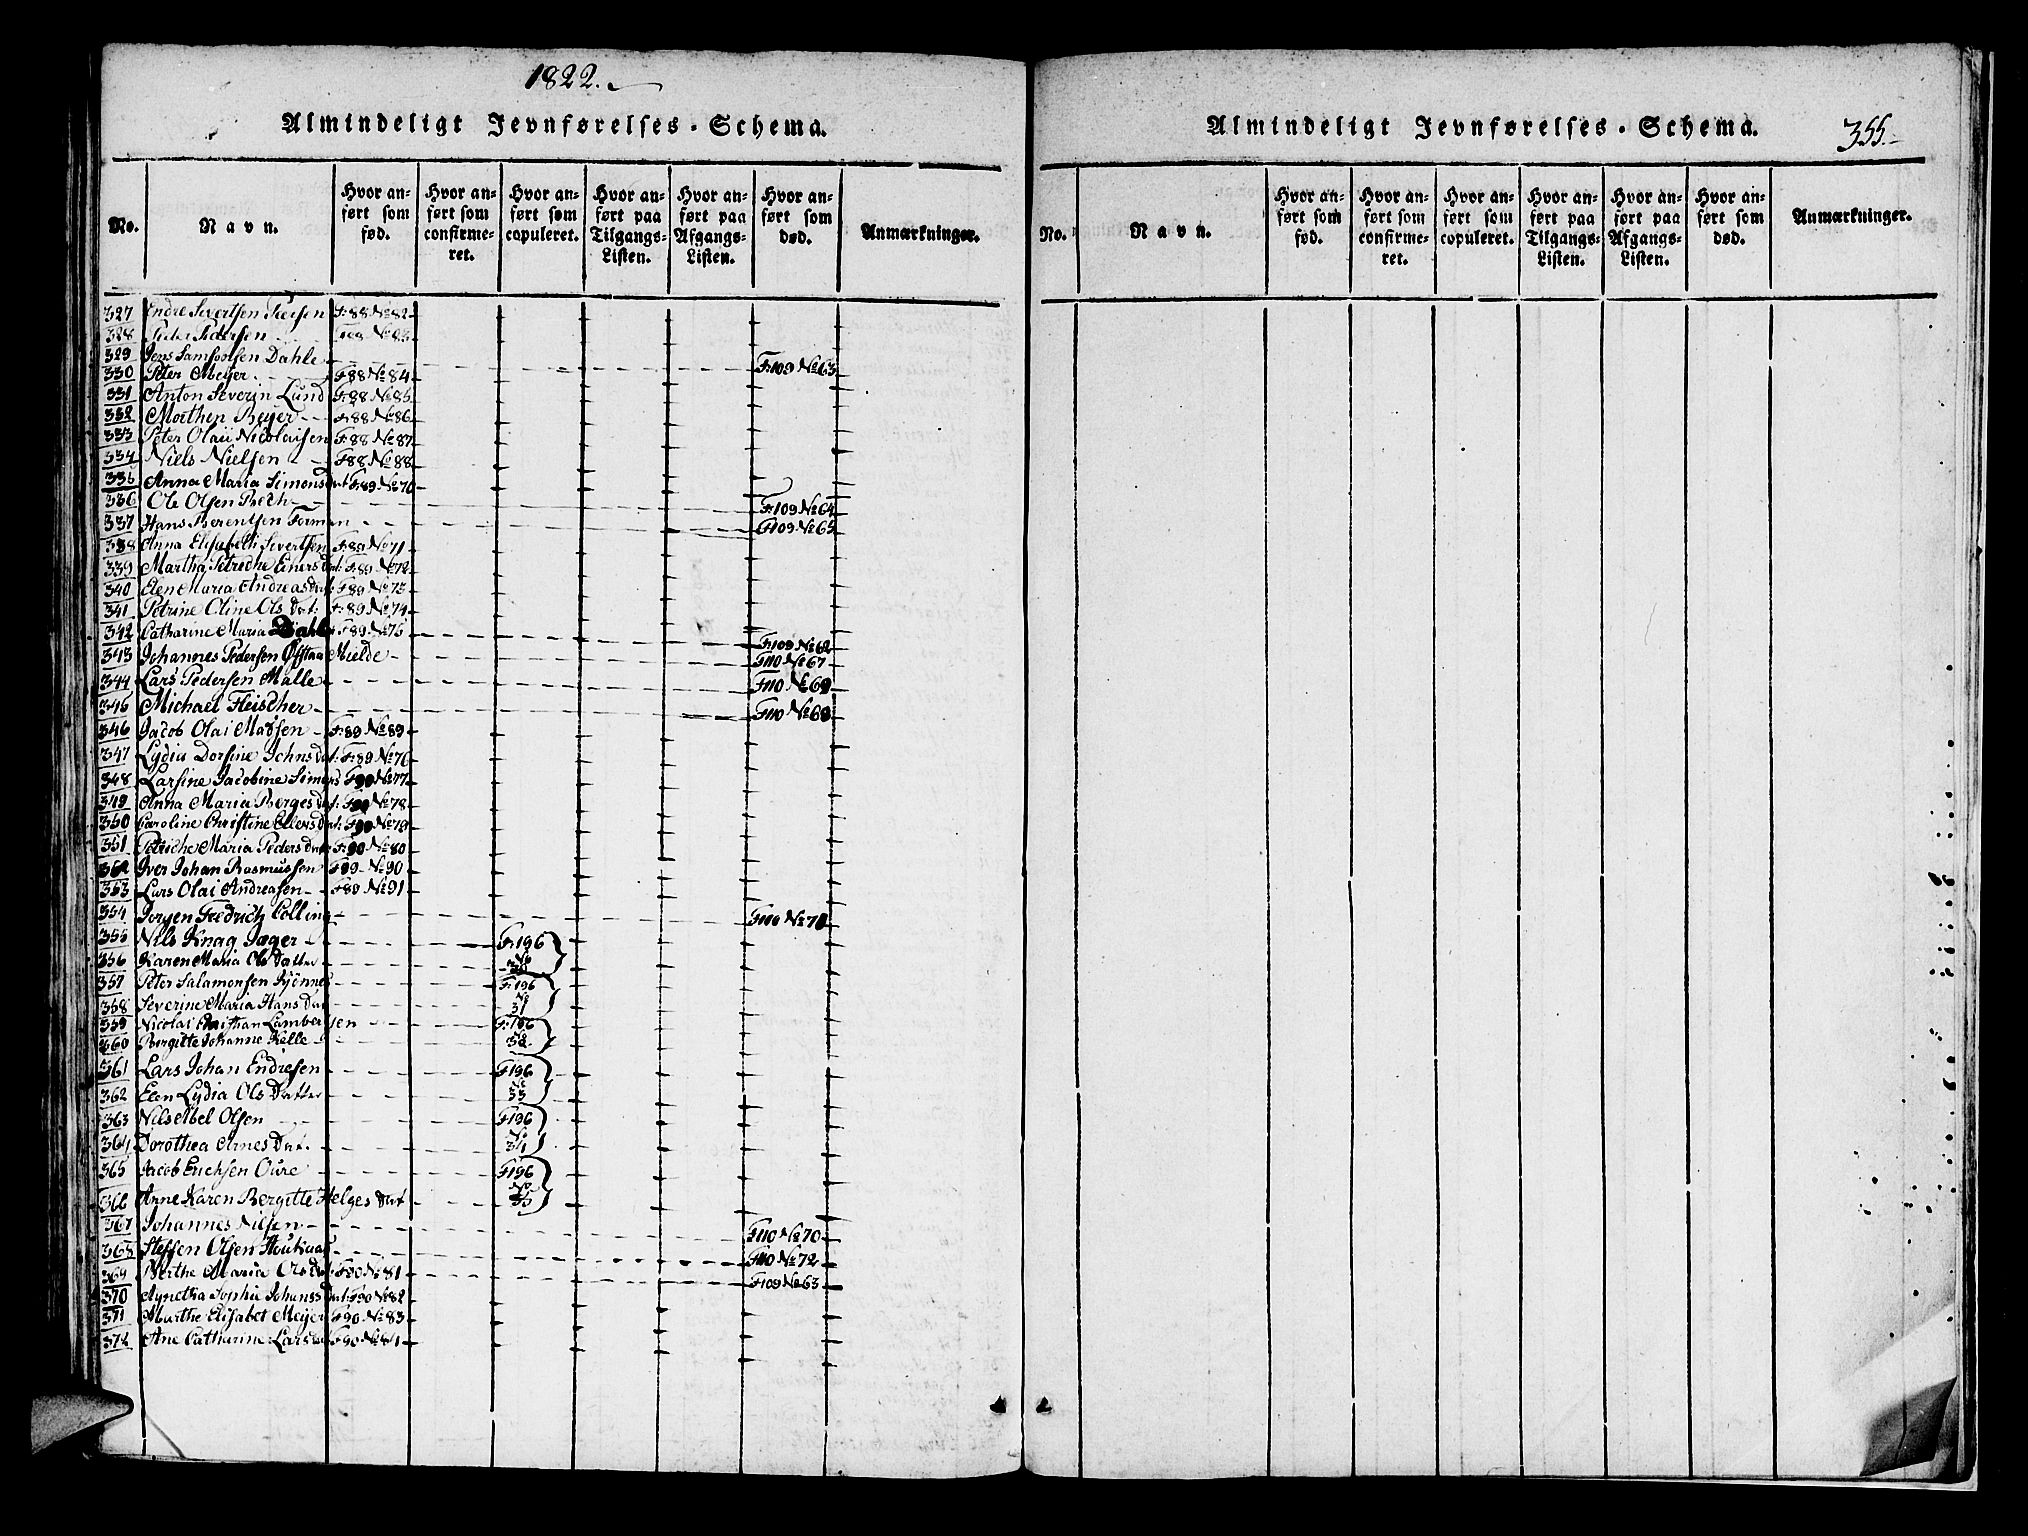 1822.
Almindeligt Jevnførelses-Schema.
No. Navn. Hvor anført som fød. Hvor anført som confirmeret. Hvor anført som copuleret. Hvor anført paa Tilgangs-Listen. Hvor anført paa Afgangs-Listen. Hvor anført som død. Anmærkninger.
327 Endre Sivertsen F:88 No 82
328 Pedersen No 83
329 Jens Samsonsen Dahle F:109 No 63
330 Peter Meyer F88 No 84
331 Anton Severin Lund F:88 No 85
332 Morthen Beyer F:88 No 86
333 Peter Olai Nicolaisen F:88 No 87
334 Niels Nielsen F88 No 88
335 Anna Maria Simonsdat F:89 No 70
336 Ole Olsen Bech F:109 No 64
337 Hans Berentsen Forman F109 No 65
338 Anna Elisabeth Sivertsen F:89 No 71
339 Martha Petriche Einersdat: F:89 No 72
340 Elen Maria Andreasdat: F89 No 73
341 Petrine Oline Ols Dat: F:89 No 74
342 Catharine Maria Dahl F89 No 75 F:109 No 62
343 Johannes Pedersen Mielde F110 No 67
344 Lars Pedersen Malle F110 No 69
345 Michael Fleischer F110 No 68
346 Jacob Olai Madsen F:89 No 89
347 Lydia Dorsine Johns Dat: F:89 No 76
348 Larsine Jacobine Simons F90 No 77
349 Anna Maria Berges Dat: F90 No 78
350 Caroline Christine Ellers Dat: F90 No 79
351 Petriche Maria Peders Dat: F:90 No 80
352 Iver Johan Rasmussen F89 No 90
353 Lars Olai Andreasen F:89 No 91
354 Jørgen Fredrich Colling F110 No 71
355 Nils Knag Jæger F:196
356 Karen Maria Ols Datter No 30
357 Peter Salamonsen F:196
358 Severine Maria Hans Dat No 31
359 Nicolai Christian Lambersen F:196
360 Bergitte Johanne Kalle No 32
361 Lars Johan Endresen F196
362 Elen Lydia Ols Datter No 33
363 Nils Abel Olsen F196
364 Dorothea Arnes Dat. No 34
365 Jacob Erichsen Oure F196
366 Anne Karen Bergitte Helges Dat No 35
367 Johannes Nilsen F110 No 70
368 Steffen Olsen F110 No 72
369 Berthe Maria Ols Dat: F90 No 81 F109 No 63
370 Agnetha Sophie Johans Dat: F90 No 82
371 Marthe Elisabet Meyer F90 No 83
372 Ane Catharine Lars F90 No 84
Almindeligt Jevnførelses-Schema. 355.
No. Navn. Hvor anført som fød. Hvor anført som confirmeret. Hvor anført som copuleret. Hvor anført paa Tilgangs-Listen. Hvor anført paa Afgangs-Listen. Hvor anført som død. Anmærkninger.